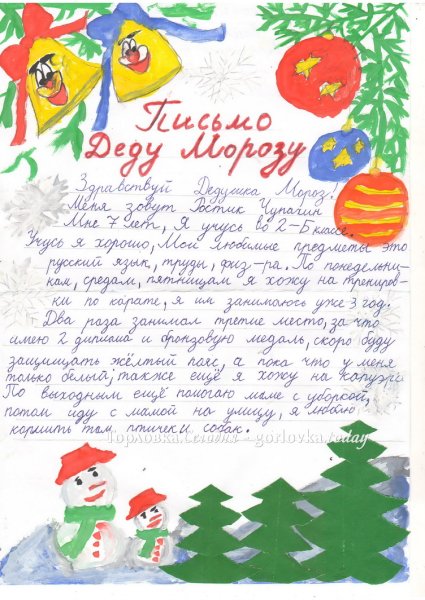 Письмо
Деду Морозу
Здравствуй Дедушка Мороз!
Меня зовут Ростик Чупагин
Мне 7 лет, Я учусь во 2-Б классе.
Учусь я хорошо, Мои любимые предметы это
русский язык, труды, физ-ра. По понедельни-
кам, средам, пятницам я хожу на трениров-
ки по карате, я им занимаюсь уже 3 год.
Два раза занимал третие место, за что
имею 2 диплома и бронзовую медаль, скоро буду
защищать жёлтый пояс, а пока что у меня
только белый; также ещё я хожу на капуэра
По выходным ещё помогаю маме с уборкой,
потом иду с мамой на улицу, я люблю
кормить там птичек и собак.
Горловка.Сегодня - gorlovka.today